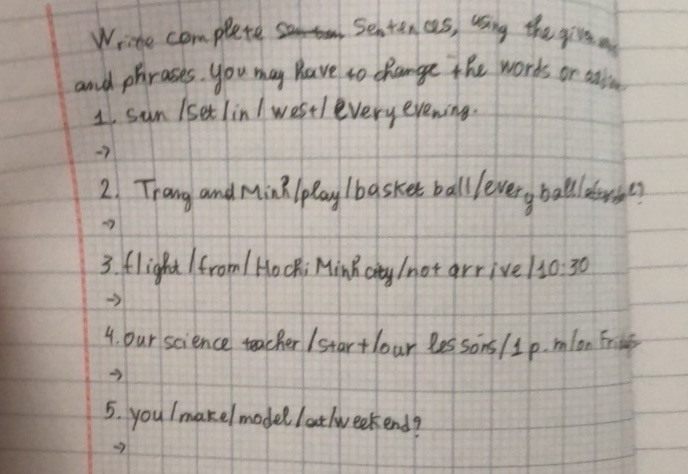 Write complete Sentences, using the given
and phrases. You may have to change the words or
1. Sun /set/in/ west/ every evening.
->
2. Trang and Minh/play/basket ball/every ball/
->
3. flight/from/Hochi Minh city/not arrive/10:30
->
4. our science teacher/start/our lessons/1 p.m/on
->
5. you/make/model/at/weekend?
->